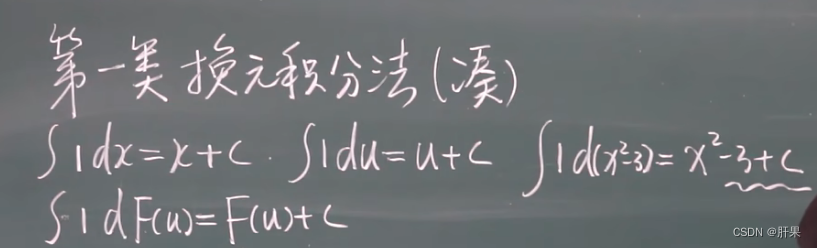 第一类换元积分法(凑)
∫1dx=x+c. ∫1du=u+c ∫1d(x²-3)=x²-3+c
∫1dF(u)=F(u)+c
CSDN @肝果